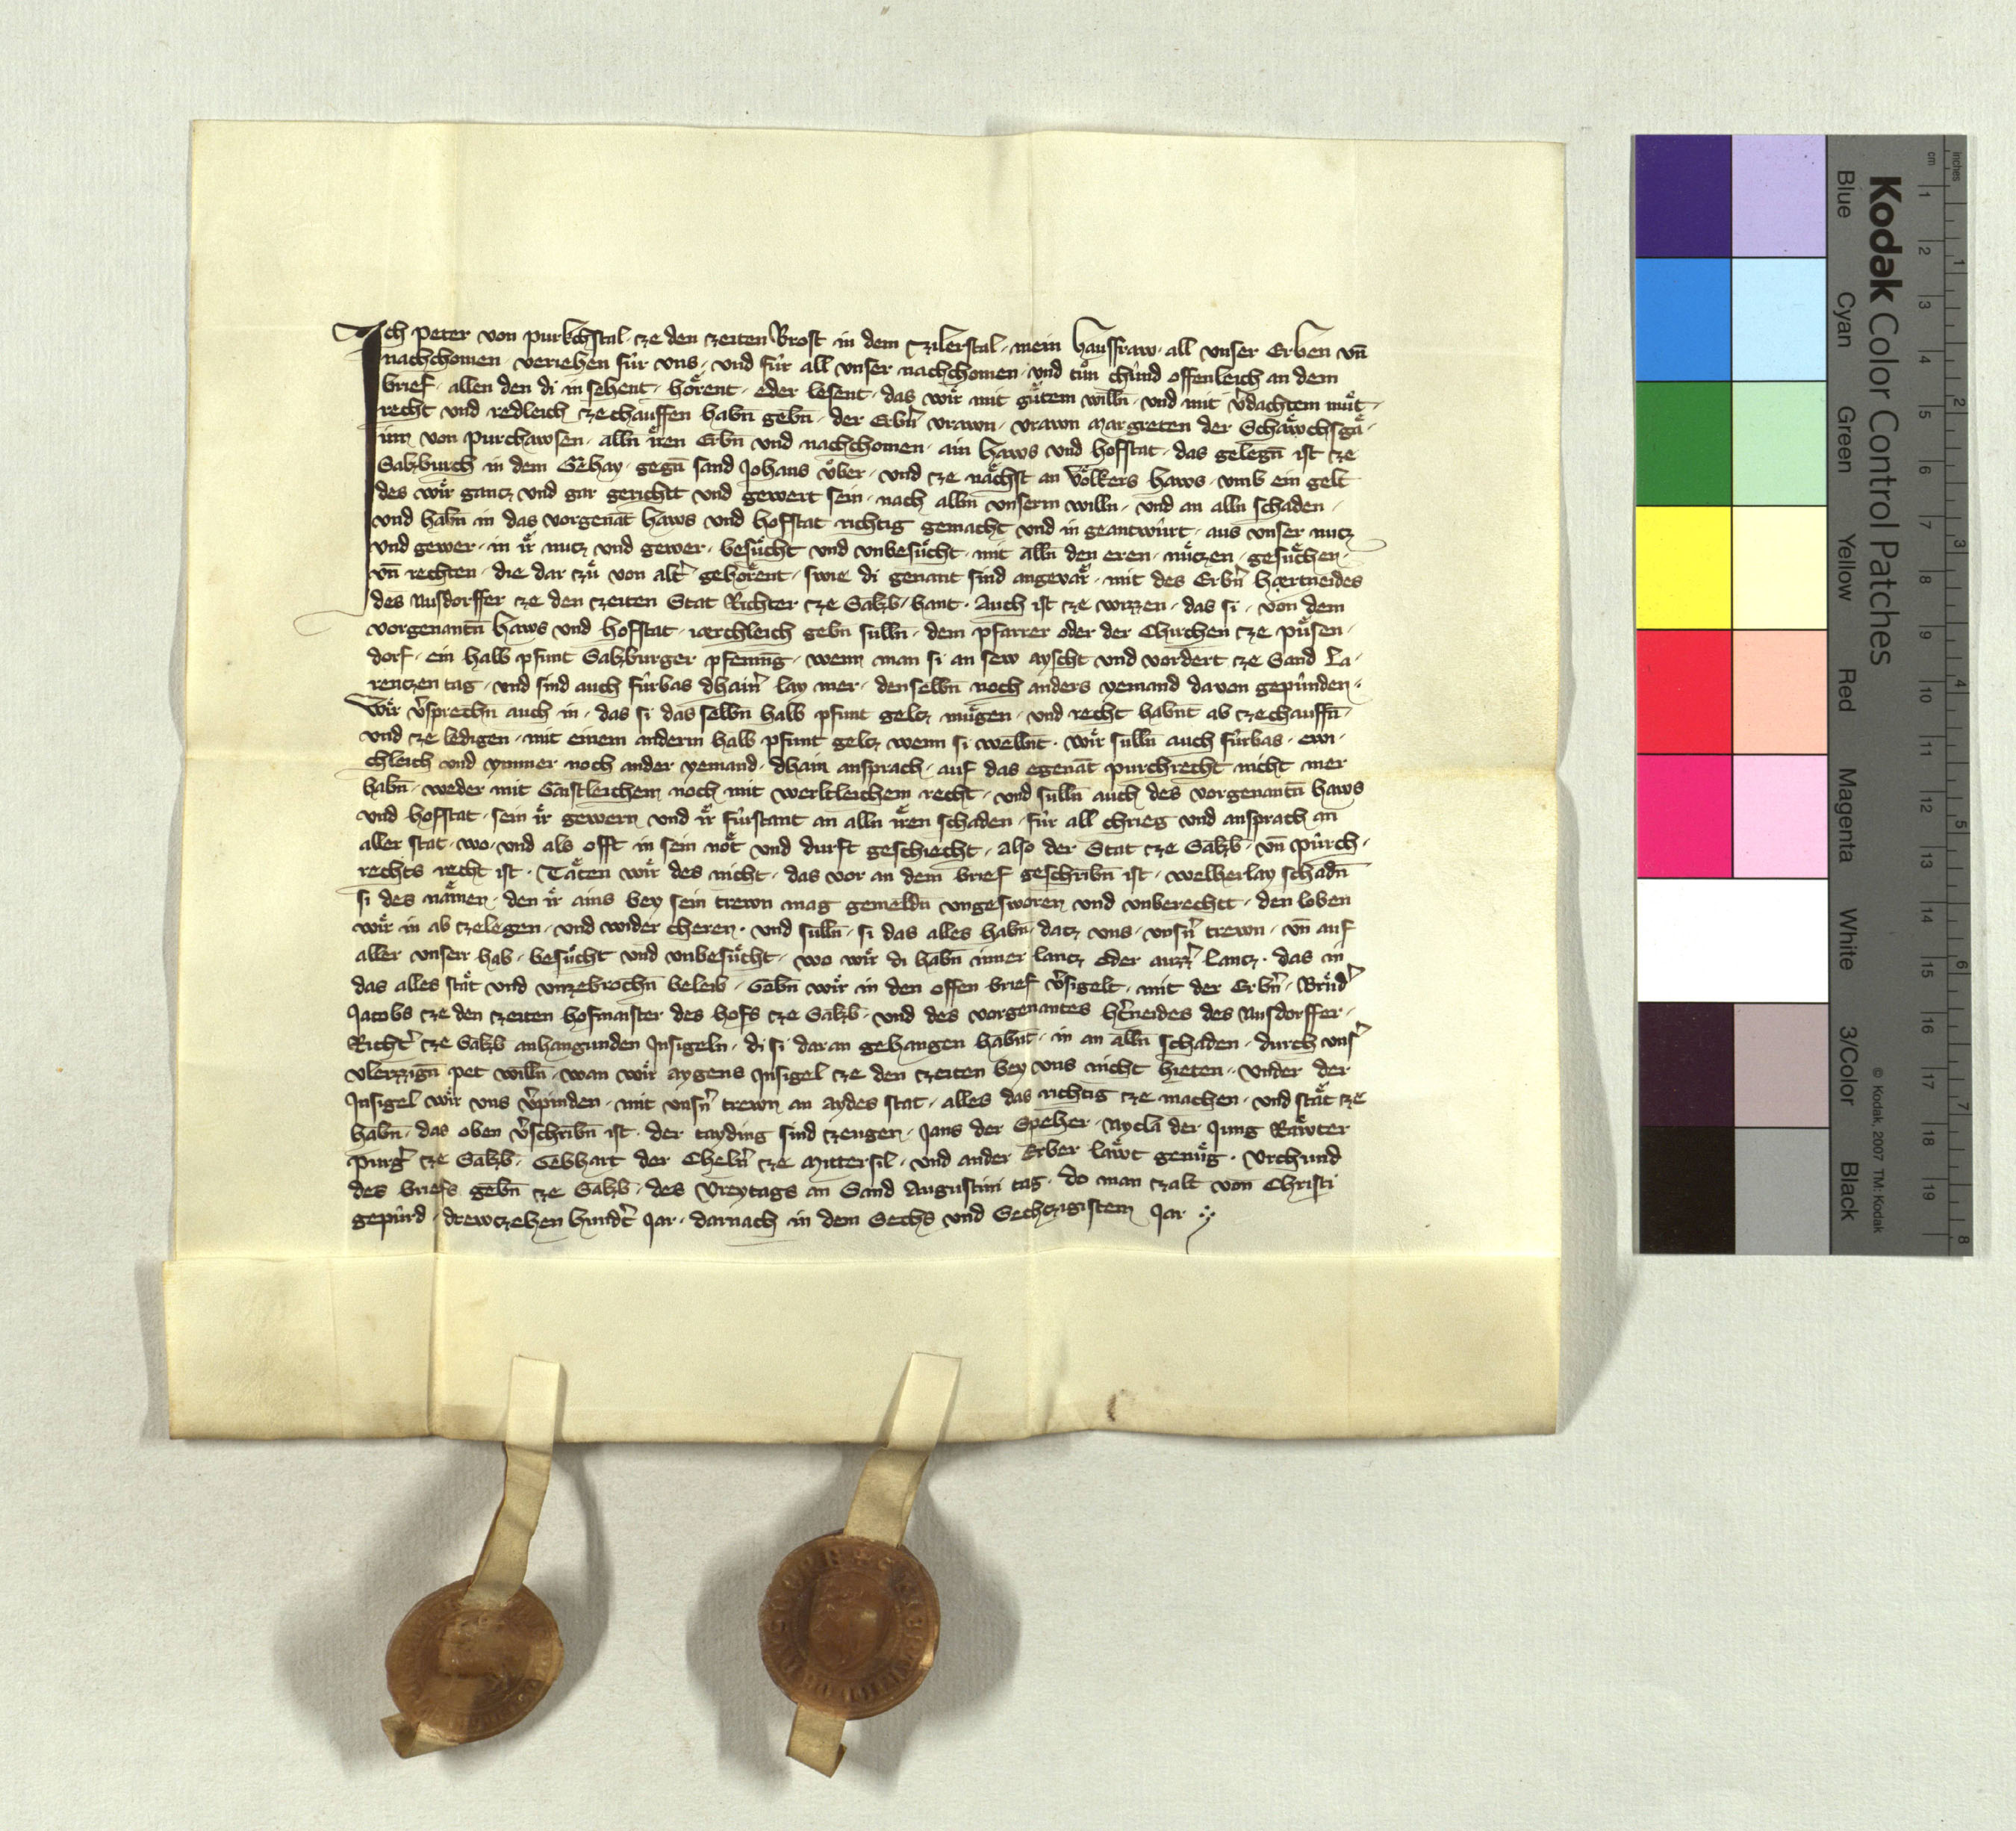 Ich Peter von purkchstal · cze den czeiten Brost in dem Czilerstal · mein hausfraw · all vnser Erben vn̄
nachchomen · veriehen für vns · vnd für all vnser nachchomen · vnd tůn chünd offenleich an dem
brief · allen den di in sehent · hörent · oder lesent · das wir mit gůtem willn̄ · vnd mit v̓dachtem můt ·
recht vnd redleich czechauffen habn̄ gebn̄ · der Erbn̓ vrawn · vrawn Margreten der Schäwchsgä ·
inn von Purchawsen · alln̄ iren Erbn̄ vnd nachchomen · ain haws vnd hofstat · das gelegn̄ ist cze
Salzburch in dem Gehay · gegn̄ sand Johans vber · vnd cze nächst an Völkers haws · vmb ein gelt
des wir gancz vnd gar gerichtt vnd gewert sein · nach alln̄ vnserm willn · vnd an alln schaden ·
vnd habn̄ in das vorgenāt haws vnd hofstat richtig gemacht vnd in geantwürt · aus vnser nucz
vnd gewer · in ir nucz vnd gewer · besůcht vnd vnbesůcht · mit alln̄ den eren · nüczen · gesůchen ·
vn̄ rechten · die dar zů von alt̓ gehörent · swie di genant sind angevär · mit des Erbn̓ hærtneides
des Nusdorffer cze den czeiten Stat Richter cze Salzb · hant · Auch ist cze wizzen · das si · von dem
vorgenantn̄ haws vnd hofstat · iærchleich gebn sulln̄ · dem pfarrer oder der Chirchen cze püsen ·
dorf · ein halb pfunt Salzburger pfenni̅g · wenn man si an sew ayscht vnd vordert cze Sand La ·
renczen tag · vnd sind auch fürbas dhain̓ lay mer · denselbn̄ noch anders yemand davon gepünden ·
Wir v̓sprechn̄ auch in · das si das selbn̄ halb pfunt gelcz mügen · vnd recht habnt ab czechauffn̄
vnd cze ledigen · mit einem anderm halb pfunt gelcz wenn si wellnt · wir sulln̄ auch fürbas · ewi ·
chleich vnd ymmer noch ander yemand · dhain ansprach · auf das egenāt purchrecht nicht mer
habn̄ · weder mit Gaistleichem noch mit werltleichem recht · vnd sulln̄ auch des vorgenantn̄ haws
vnd hofstat · sein ir gewern vnd ir fürstant an alln iren schaden · für all chrieg vnd ansprach an
aller stat · wo · vnd als offt in sein nöt vnd durft geschiecht · also der Stat cze Salzb · vn̄ pürch ·
rechts recht ist · Täten wir des nicht · das vor an dem brief geschribn̄ ist · welherlay schadn̄
si des nämen · den ir ains bey sein trewn mag gemeldn vngesworen vnd vnberechtt · den loben
wir in ab czelegen · vnd wider cheren · vnd sulln̄ · si das alles habn̄ · dacz vns · vnsn̓ trewn · vn̄ auf
aller vnserr hab · besůcht vnd vnbesůcht · wo wir di habn̄ inner lancz oder auzz̓ lancz · das in
das alles stät vnd vnzebrochn̄ beleib · Gebn̄ wir in den offen brief v̓sigelt · mit der Erbn̓ · Brůd̓
Jacobs cze den czeiten hofmaister des hofs cze Salzb · vnd des vorgenantes h̓tneides des Nusdorffer ·
Richt̓ cze Salzb anhangunden Insigeln · di si daran gehangen habnt · in an alln̄ schaden · durch vns̓
vleizzign̄ pet willn̄ · wan wir aygens Insigel cze den czeiten bey vns nicht hieten · vnder der
Insigel wir vns v̓pinden · mit vnsn̓ trewn an aydes stat · alles das richtig cze machen · vnd stät cze
habn̄ · das oben v̓schribn̄ ist · der tayding sind czeugen · Jans der Speher · Nycla der Jung Räwter
purg̓ cze Salzb · Gebhart der Cheln̓ cze Mittersil · vnd ander Erber läwt genůg · Vrchund
des briefs gebn̄ cze Salzb · des Vreytags an Sand Augustini tag · do man czalt von Christi
gepürd · drewczehen hundt̓ Jar · darnach in dem Sechs vnd Sechczigistem Jar
Kodak Color Control Patches
Blue Cyan Green Yellow Red Magenta White 3/Color Black
© Kodak, 2007 TM: Kodak
inches 1 2 3 4 5 6 7 8
cm 1 2 3 4 5 6 7 8 9 10 11 12 13 14 15 16 17 18 19